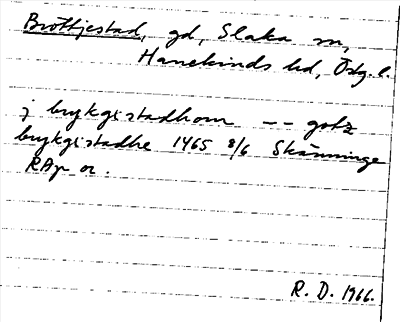 Brottjestad, gd, Slaka sn,
Hanekinds hd, Östg. l.
j brykgistadhom -- gotz
brykgistadhe 1465 8/6 Skänninge
RAp or.
R. D. 1966.